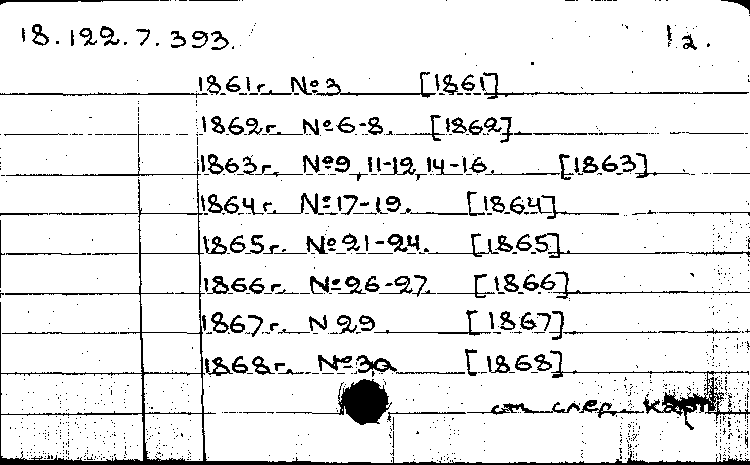 18.122.7.393. 1а.
1861г. №3 [1861]
1862г. №6-8. [1862]
1863г. №9, 11-12, 14-16. [1863]
1864г. №17-19. [1864]
1865г. №21-24. [1865]
1866г. №26-27. [1866]
1867г. N 29. [1867]
1868г. №30 [1868]
см след. карт.